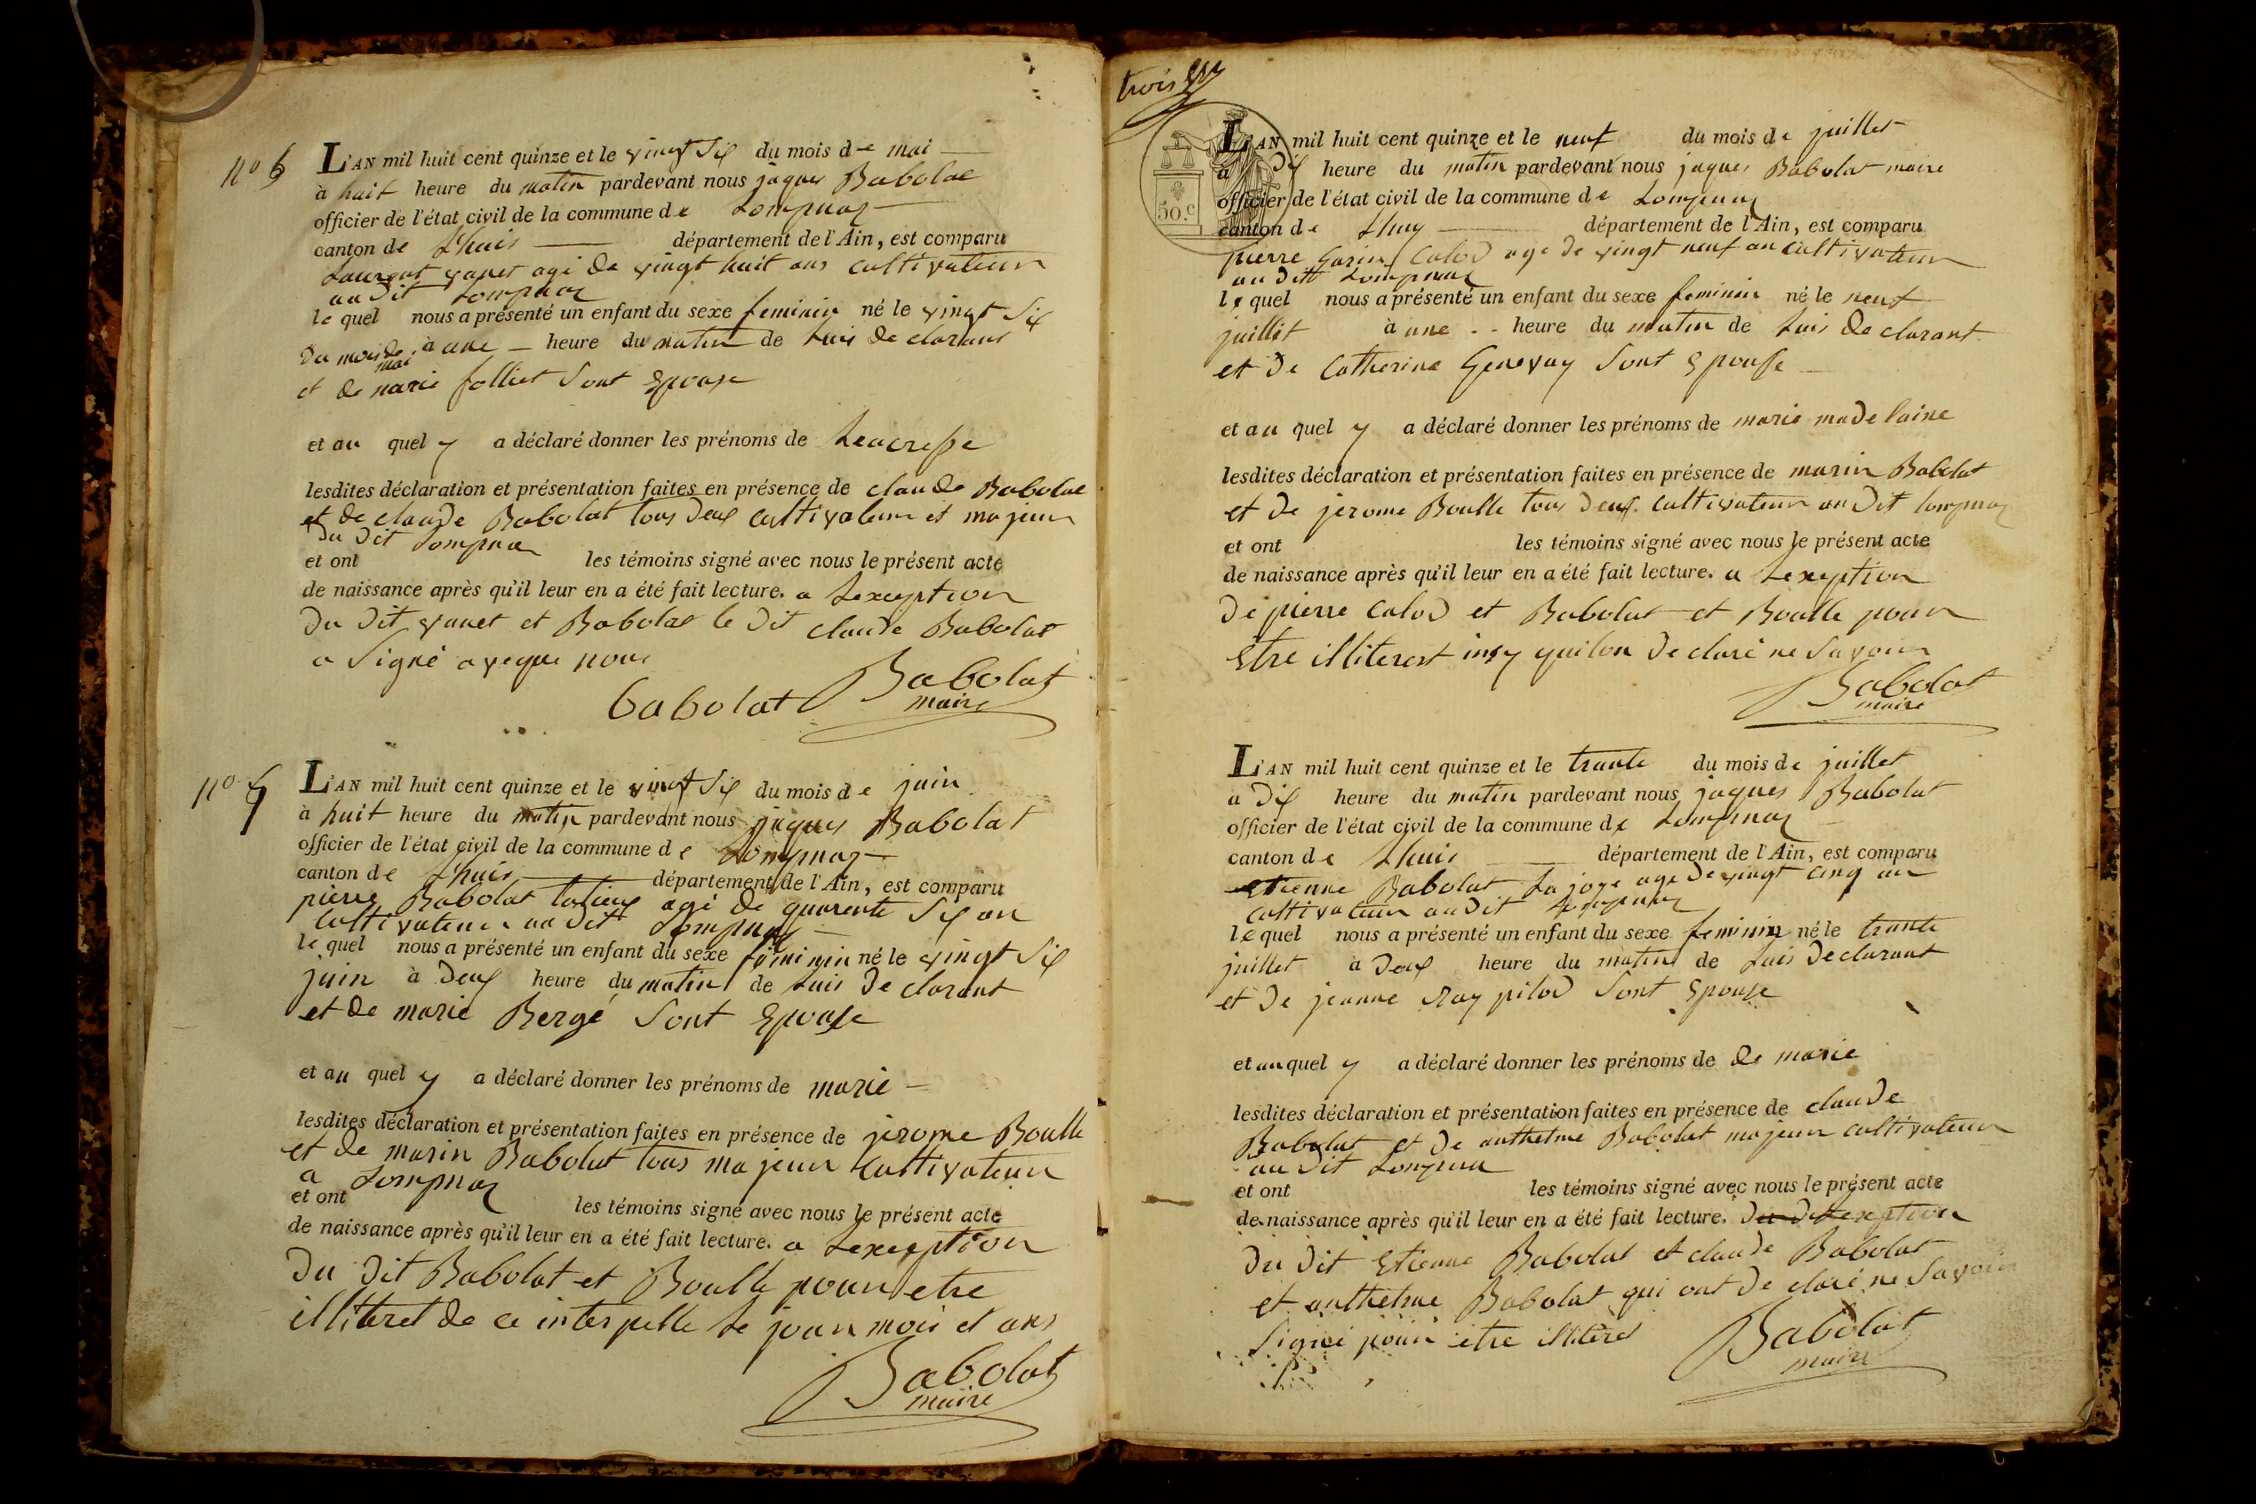 n° 6
L'AN mil huit cent quinze et le vingt six du mois de mai
à huit heure du matin pardevant nous jaques Babolat
officier de l'état civil de la commune de Lompnaz
canton de Lhuis département de l'Ain, est comparu
Laurent vanet agé de vingt huit ans cultivateur
au dit Lompnaz
le quel nous a présenté un enfant du sexe feminin né le vingt six
du mois de mai à une heure du matin de luis de clarant
et de marie folliet sont epouse
et au quel y a déclaré donner les prénoms de
lesdites déclaration et présentation faites en présence de claude Babolat
et de claude Babolat tous deux cultivateur et majeur
du dit Lompnaz
et ont les témoins signé avec nous le présent acte
de naissance après qu'il leur en a été fait lecture. a Lexeption
du dit vanet et Babolat le dit claude Babolat
a signé aveque nous
babolat Babolat
maire
n° 7
L'AN mil huit cent quinze et le vingt six du mois de juin
à huit heure du matin pardevant nous jaques Babolat
officier de l'état civil de la commune de Lompnaz
canton de Lhuis département de l'Ain, est comparu
pierre Babolat agé de quarente six an
cultivateur au dit Lompnaz
le quel nous a présenté un enfant du sexe feminin né le vingt six
juin à deux heure du matin de luis de clarant
et de marie Bergé sont epouse
et au quel y a déclaré donner les prénoms de marie
lesdites déclaration et présentation faites en présence de jerome Boulle
et de marin Babolat tous majeur cultivateur
a Lompnaz
et ont les témoins signé avec nous le présent acte
de naissance après qu'il leur en a été fait lecture. a Lexeption
du dit Babolat et Boulle pour etre
illiteret de ce interpelle le jour mois et ans
Babolat
maire
trois
50.c
L'AN mil huit cent quinze et le neuf du mois de juillet
a dix heure du matin pardevant nous jaques Babolat maire
officier de l'état civil de la commune de Lompnaz
canton de Lhuy département de l'Ain, est comparu
pierre Garin Calod age de vingt neuf an cultivateur
au dit Lompnaz
le quel nous a présenté un enfant du sexe feminin né le neuf
juillet à une heure du matin de luis de clarant
et de Catherine Genevay sont epousse
et au quel y a déclaré donner les prénoms de marie madelaine
lesdites déclaration et présentation faites en présence de marin Babolat
et de jerome Boulle tous deux cultivateur au dit lompnaz
et ont les témoins signé avec nous le présent acte
de naissance après qu'il leur en a été fait lecture. a Lexeption
de pierre calod et Babolat et Boulle pour
Etre illiterest quilon de claré ne savoir
Babolat
maire
L'AN mil huit cent quinze et le trante du mois de juillet
a dix heure du matin pardevant nous jaques Babolat
officier de l'état civil de la commune de Lompnaz
canton de Lhuis département de l'Ain, est comparu
Etienne Babolat La joye age de vingt cinq an
cultivateur au dit Lompnaz
le quel nous a présenté un enfant du sexe feminin né le trante
juillet à deux heure du matin de luis de clarant
et de jeanne Ray pilod sont epouse
et au quel y a déclaré donner les prénoms de de marie
lesdites déclaration et présentation faites en présence de claude
Babolat et de anthelme Babolat majeur cultivateur
au dit Lompna
et ont les témoins signé avec nous le présent acte
de naissance après qu'il leur en a été fait lecture. Lexeption
du dit Etienne Babolat et claude Babolat
et anthelme Babolat qui ont de claré ne savoir
signé pour etre illiteret
Babolat
maire